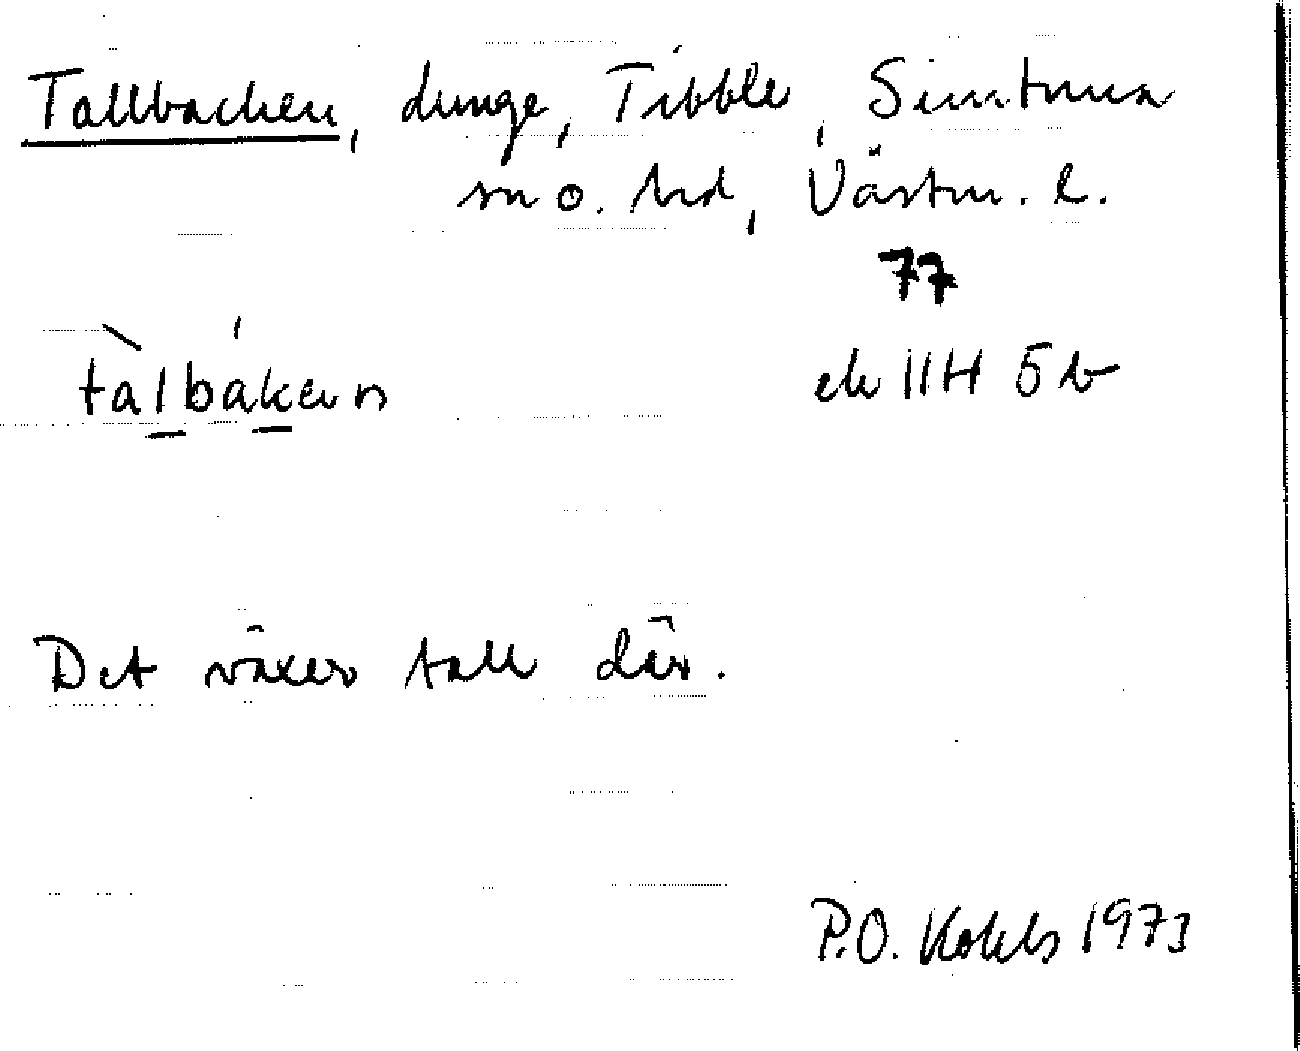 Tallbacken, dunge, Tibble, Simtuna
sn o. hd, Västm. l.
77
tàlbákan
ek 11H 5b
Det växer tall där.
P.O. 1973